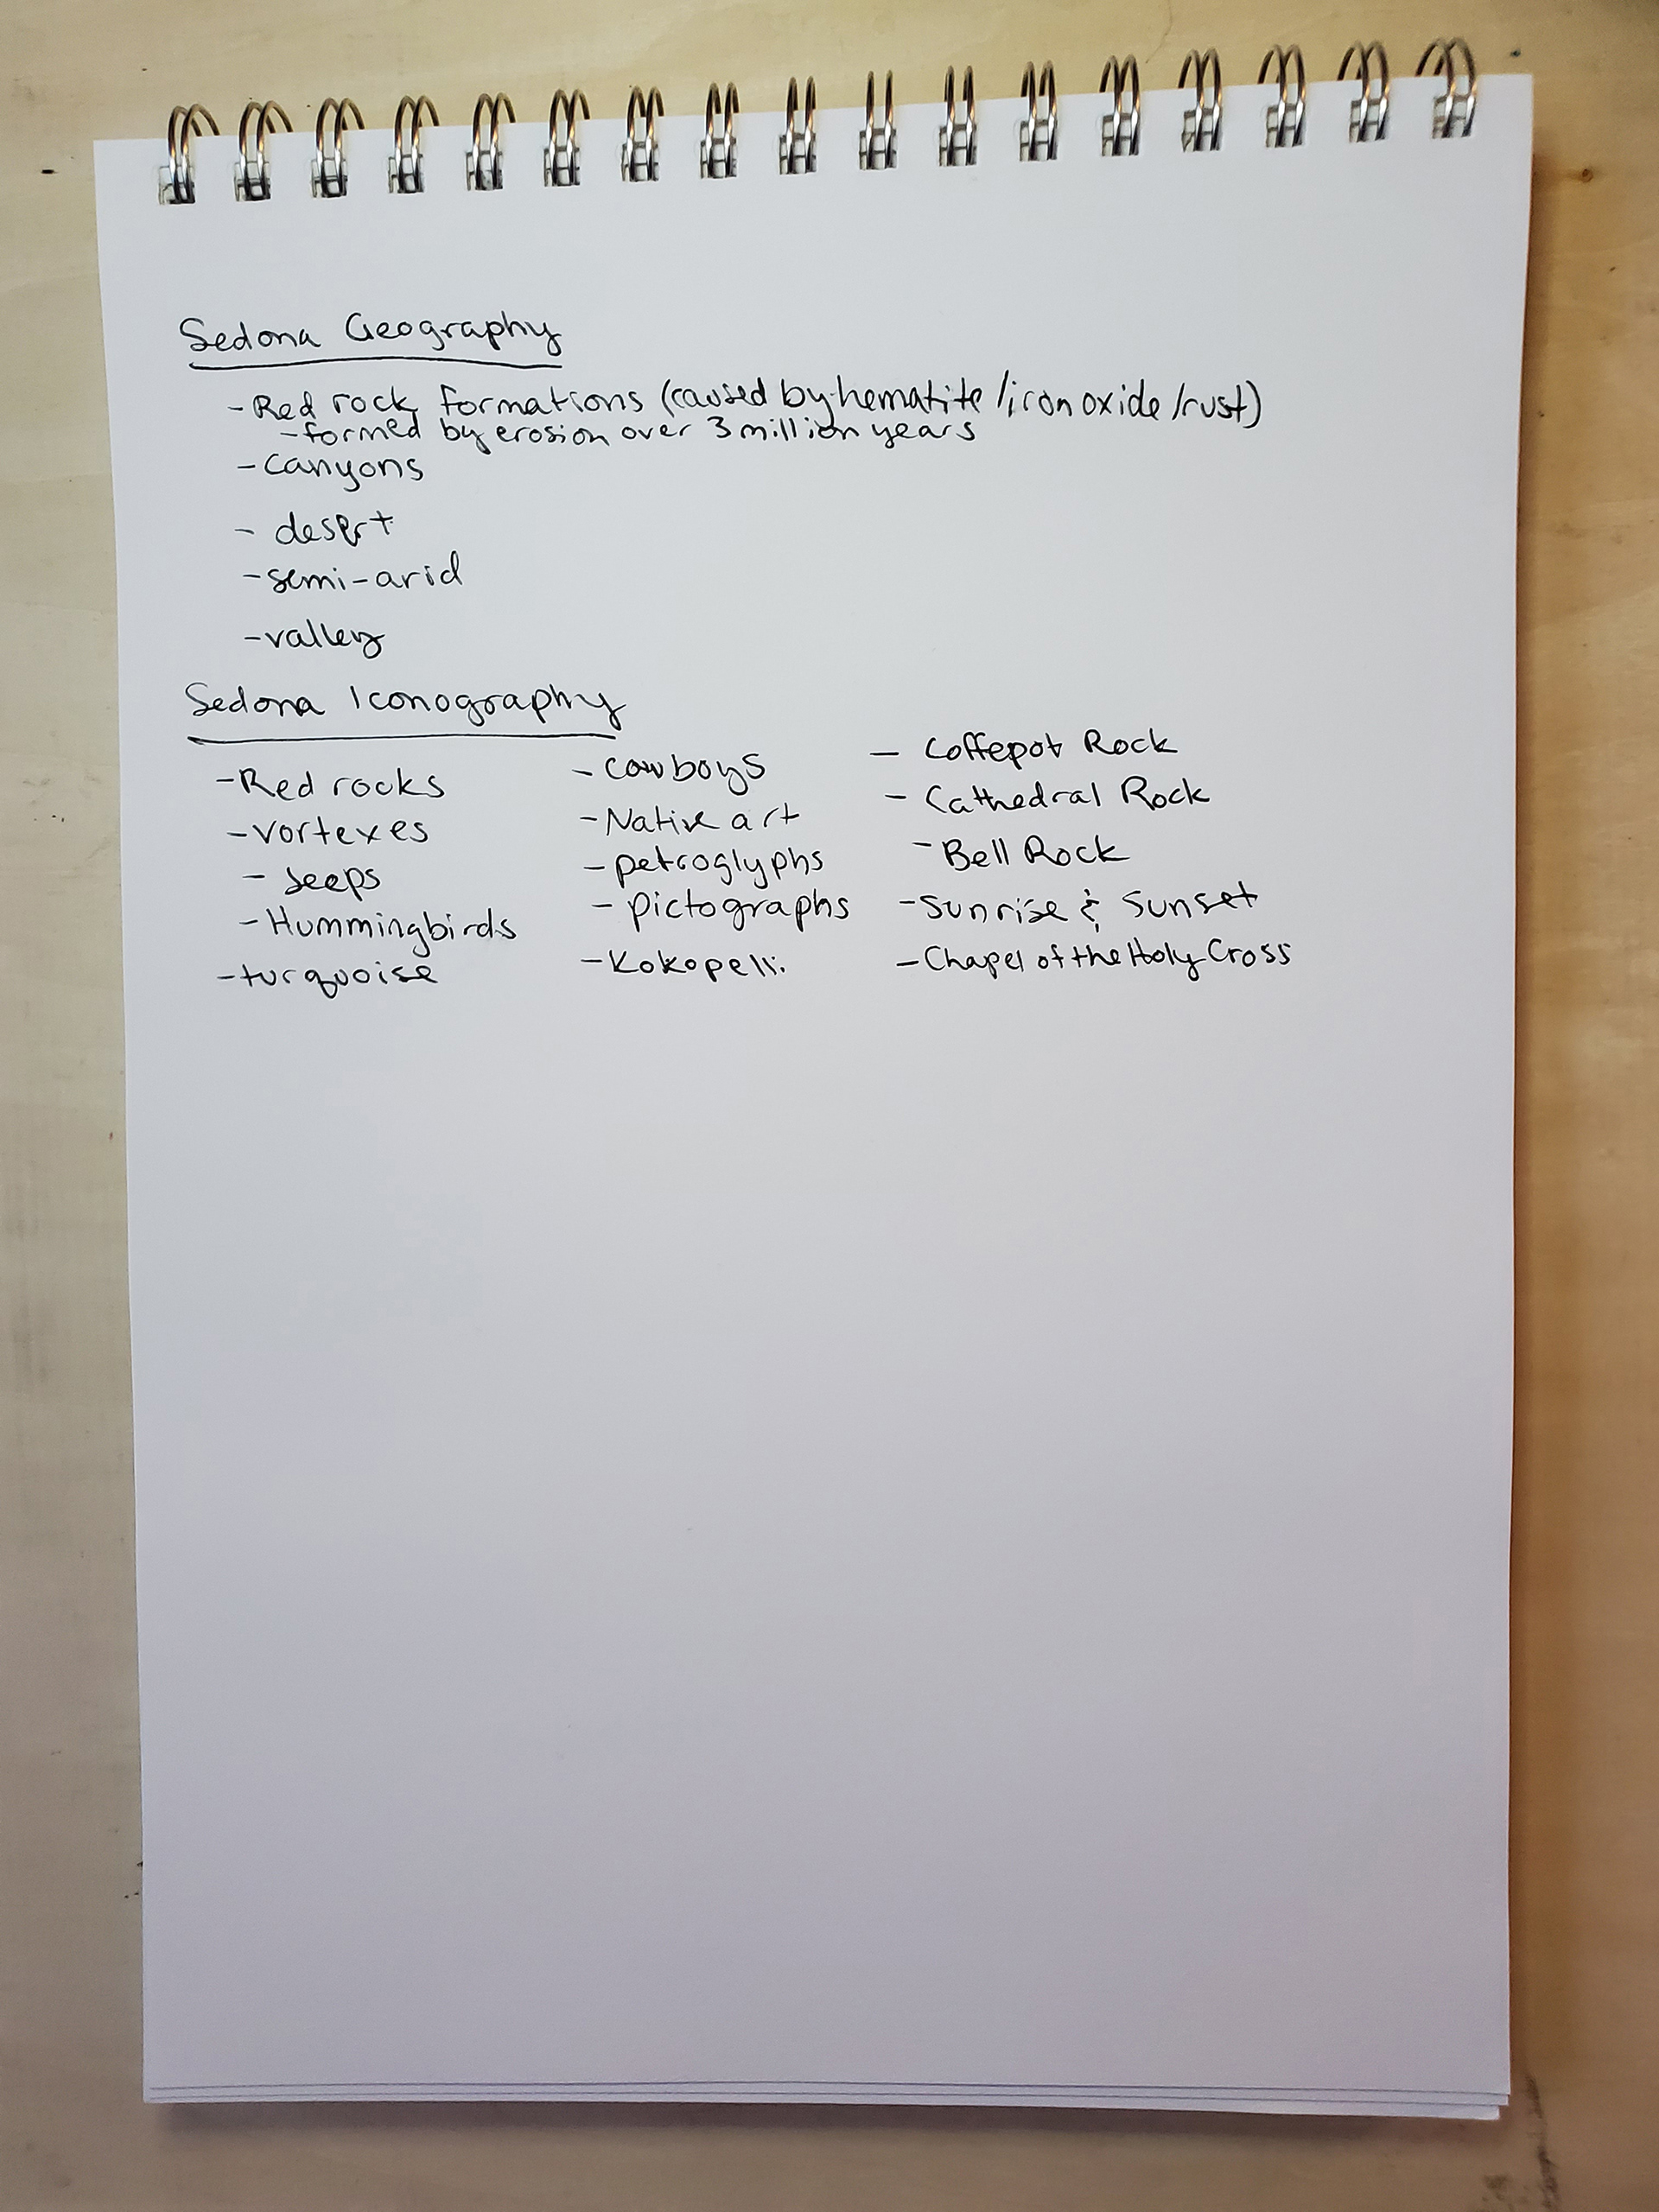 Sedona Geography
- Red rock formations (caused by hematite /iron oxide /rust)
- formed by erosion over 3 million years
- Canyons
- desert
- semi-arid
- valley
Sedona Iconography
- Red rocks
- vortexes
- Jeeps
- Hummingbirds
- turquoise
- Cowboys
- Native art
- petroglyphs
- pictographs
- Kokopelli
- Coffepot Rock
- Cathedral Rock
- Bell Rock
- Sunrise & Sunset
- Chapel of the Holy Cross